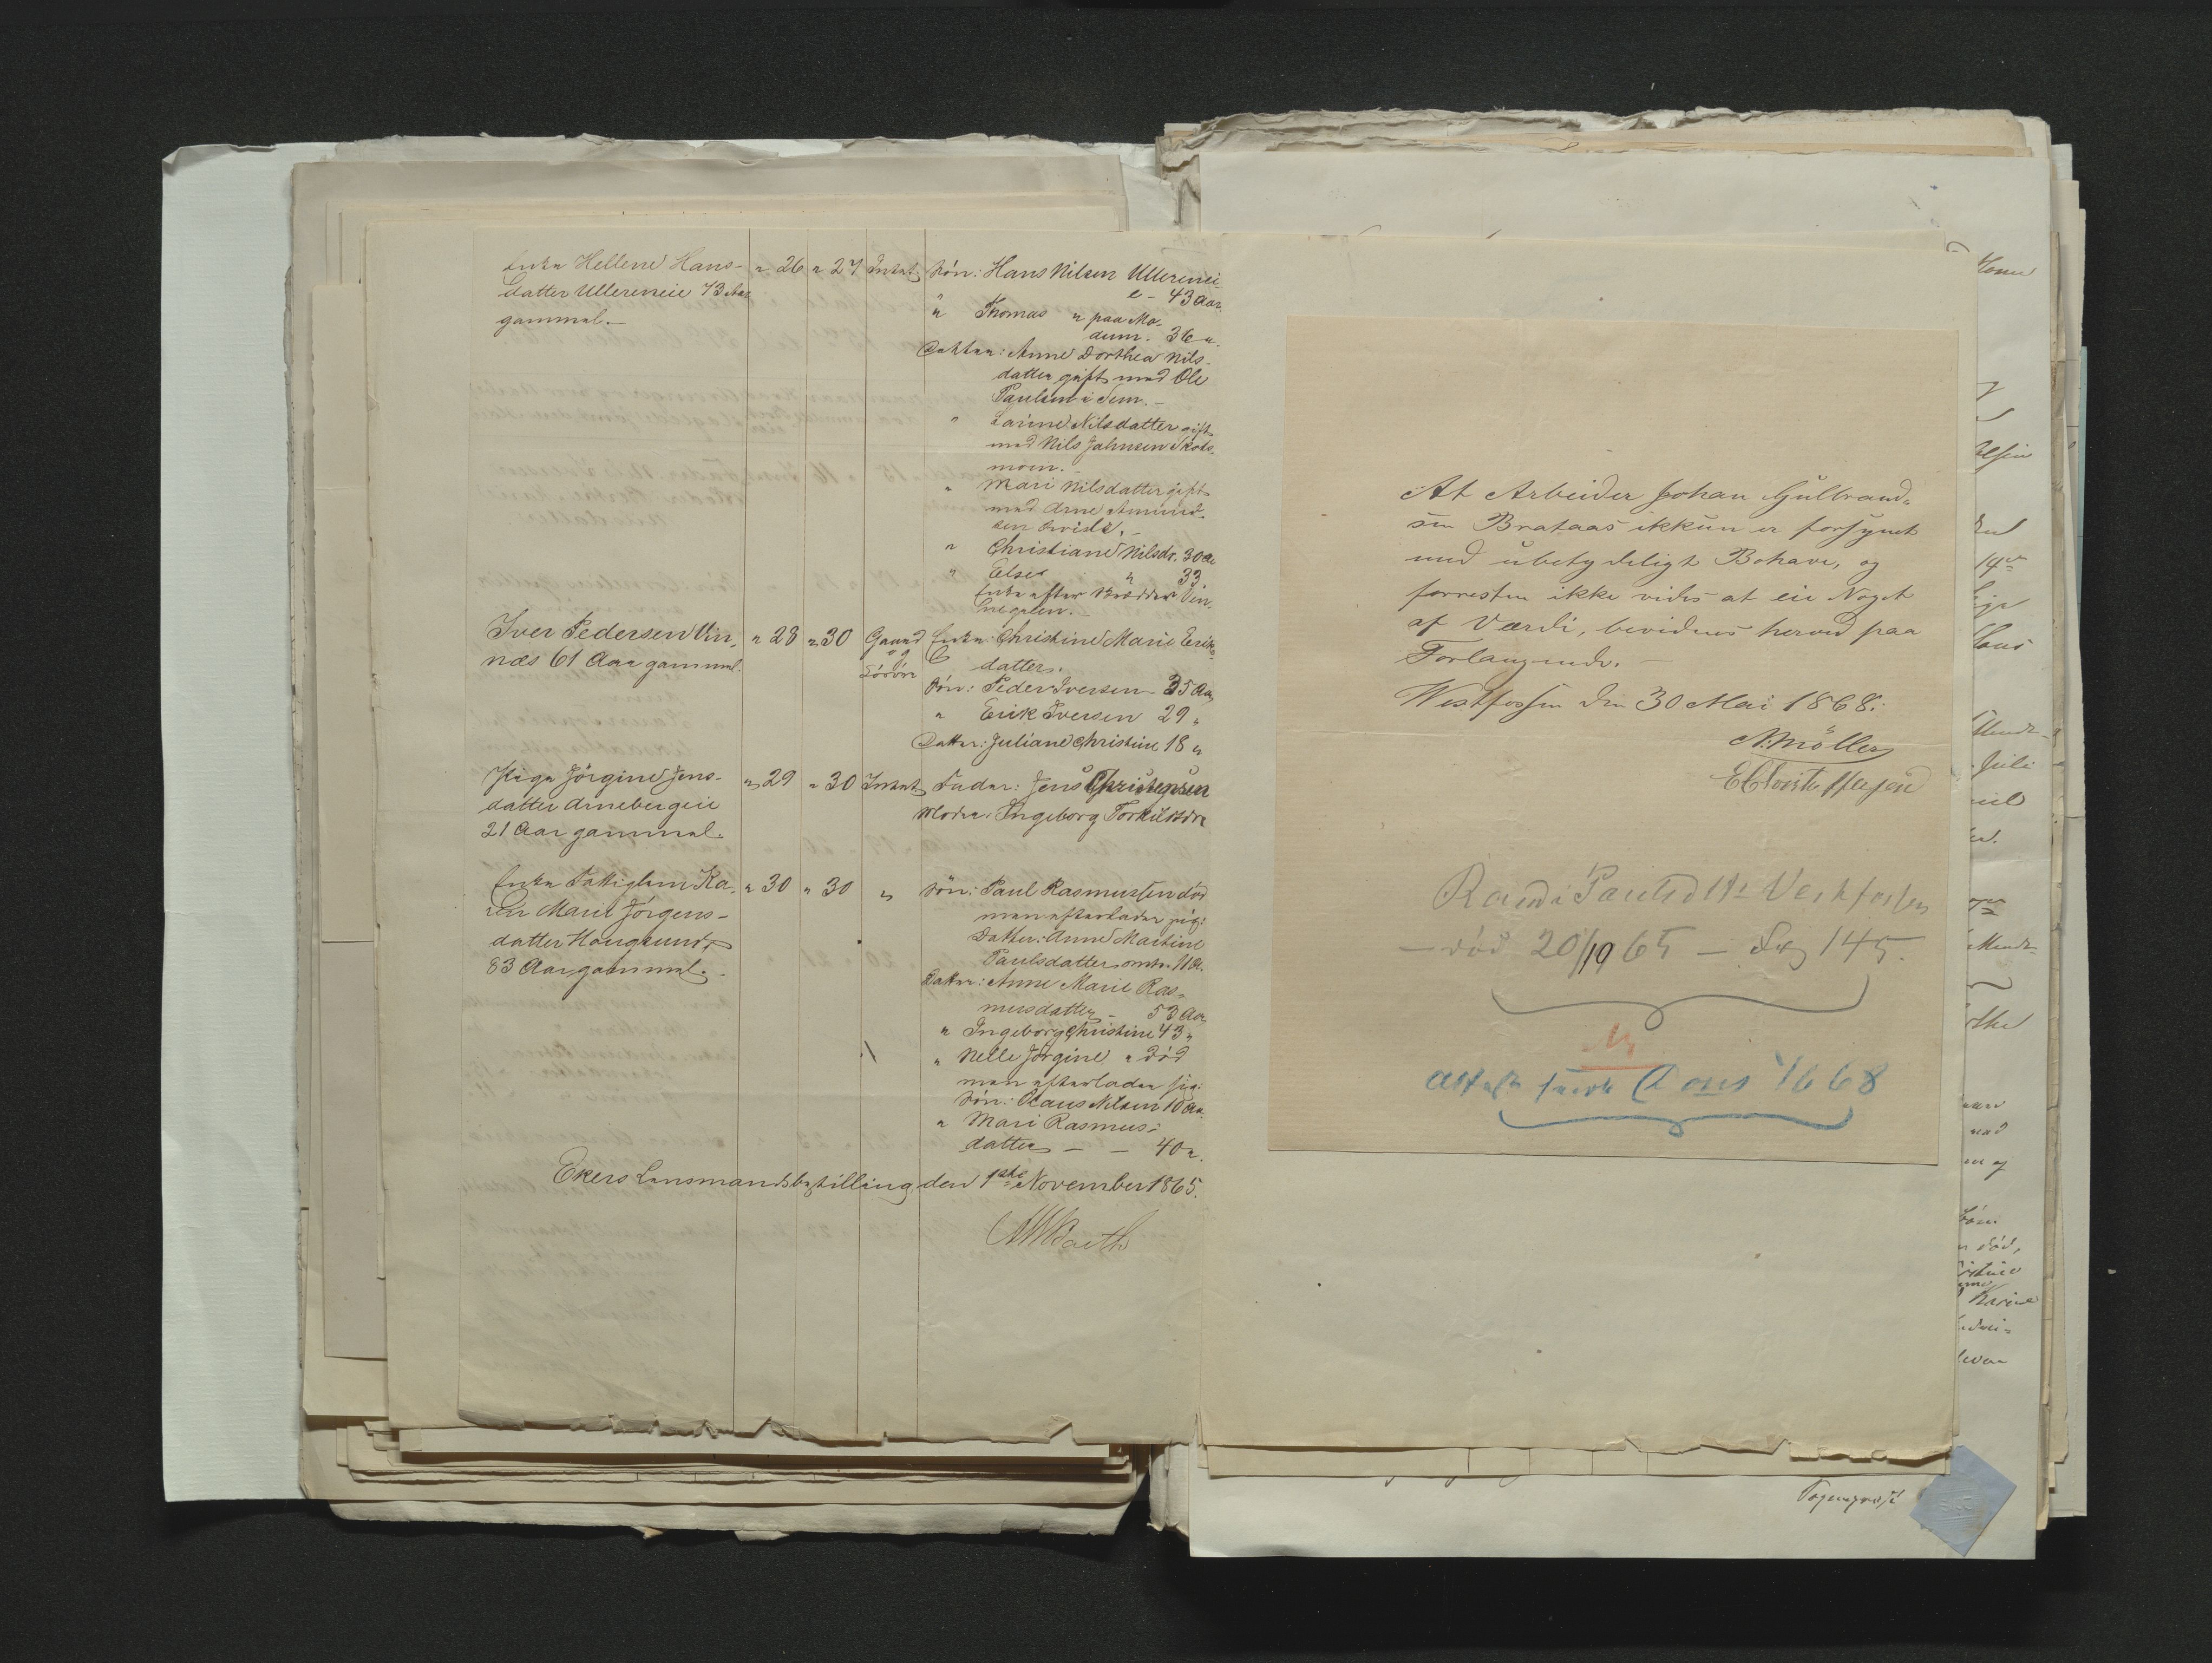 Enke Hellene Hans-
datter Ullereneie 73 Aar
gammel.-
" 26 " 27 Intet
Sön: Hans Nilsen Ullerenei-
e - 43 Aar.
" Thomas " paa Mo-
dum. 36 "
Datter: Anne Dorthea Nils-
datter gift med Ole
Paulsen i Sem.-
" Karine Nilsdatter gift
med Nils Jahnsen Skots-
moen.-
" Mari Nilsdatter gift
med Arne Amund-
sen
" Christiane Nilsdr. 30 Aa
" Else " 33.
Enke efter
Iver Pedersen Vin-
næs 61 Aar gammel.
" 28 " 30 Gaard
og
Lösöre
Enke: Christine Marie Eriks-
datter.
Sön: Peder Iversen - 35 Aar
" Erik Iversen 29 "
Datter: Juliane Christine 18 "
Pige Jörgine Jens-
datter Arnebergeie
21 Aar gammel.
" 29 " 30 Intet
Fader: Jens Christensen
Moder: Ingeborg Torkildsdr
Enke Fattiglem Ka-
ren Marie Jörgens-
datter Hougsund
83 Aar gammel.-
" 30 " 30 "
Sön: Paul Rasmussen död
men efterlader sig:
Datter: Anne Martine
Paulsdatter omtr. 11 A.
Datter: Anne Marie Ras-
musdatter - 53 Aar
" Ingeborg Christine 43 "
" Nelle Jörgine " död
men efterlader sig:
Sön: Claus Nilsen 10 Aar
" Mari Rasmus-
datter - - 40 "
Ekers Lensmandsbestilling den 1ste November 1865.
At Arbeider Johan Gulbrand-
sen Brataas ikkun er forsynet
med ubetydeligt Bohave, og
forresten ikke vides at eie Noget
af Værdi, bevidnes herved paa
Forlangende.-
Westfossen den 30 Mai 1868.
N. Möller
E Christoffersen
Randi Paulsdtr Vestfossen
- död 20/10 65 - 145.
1668